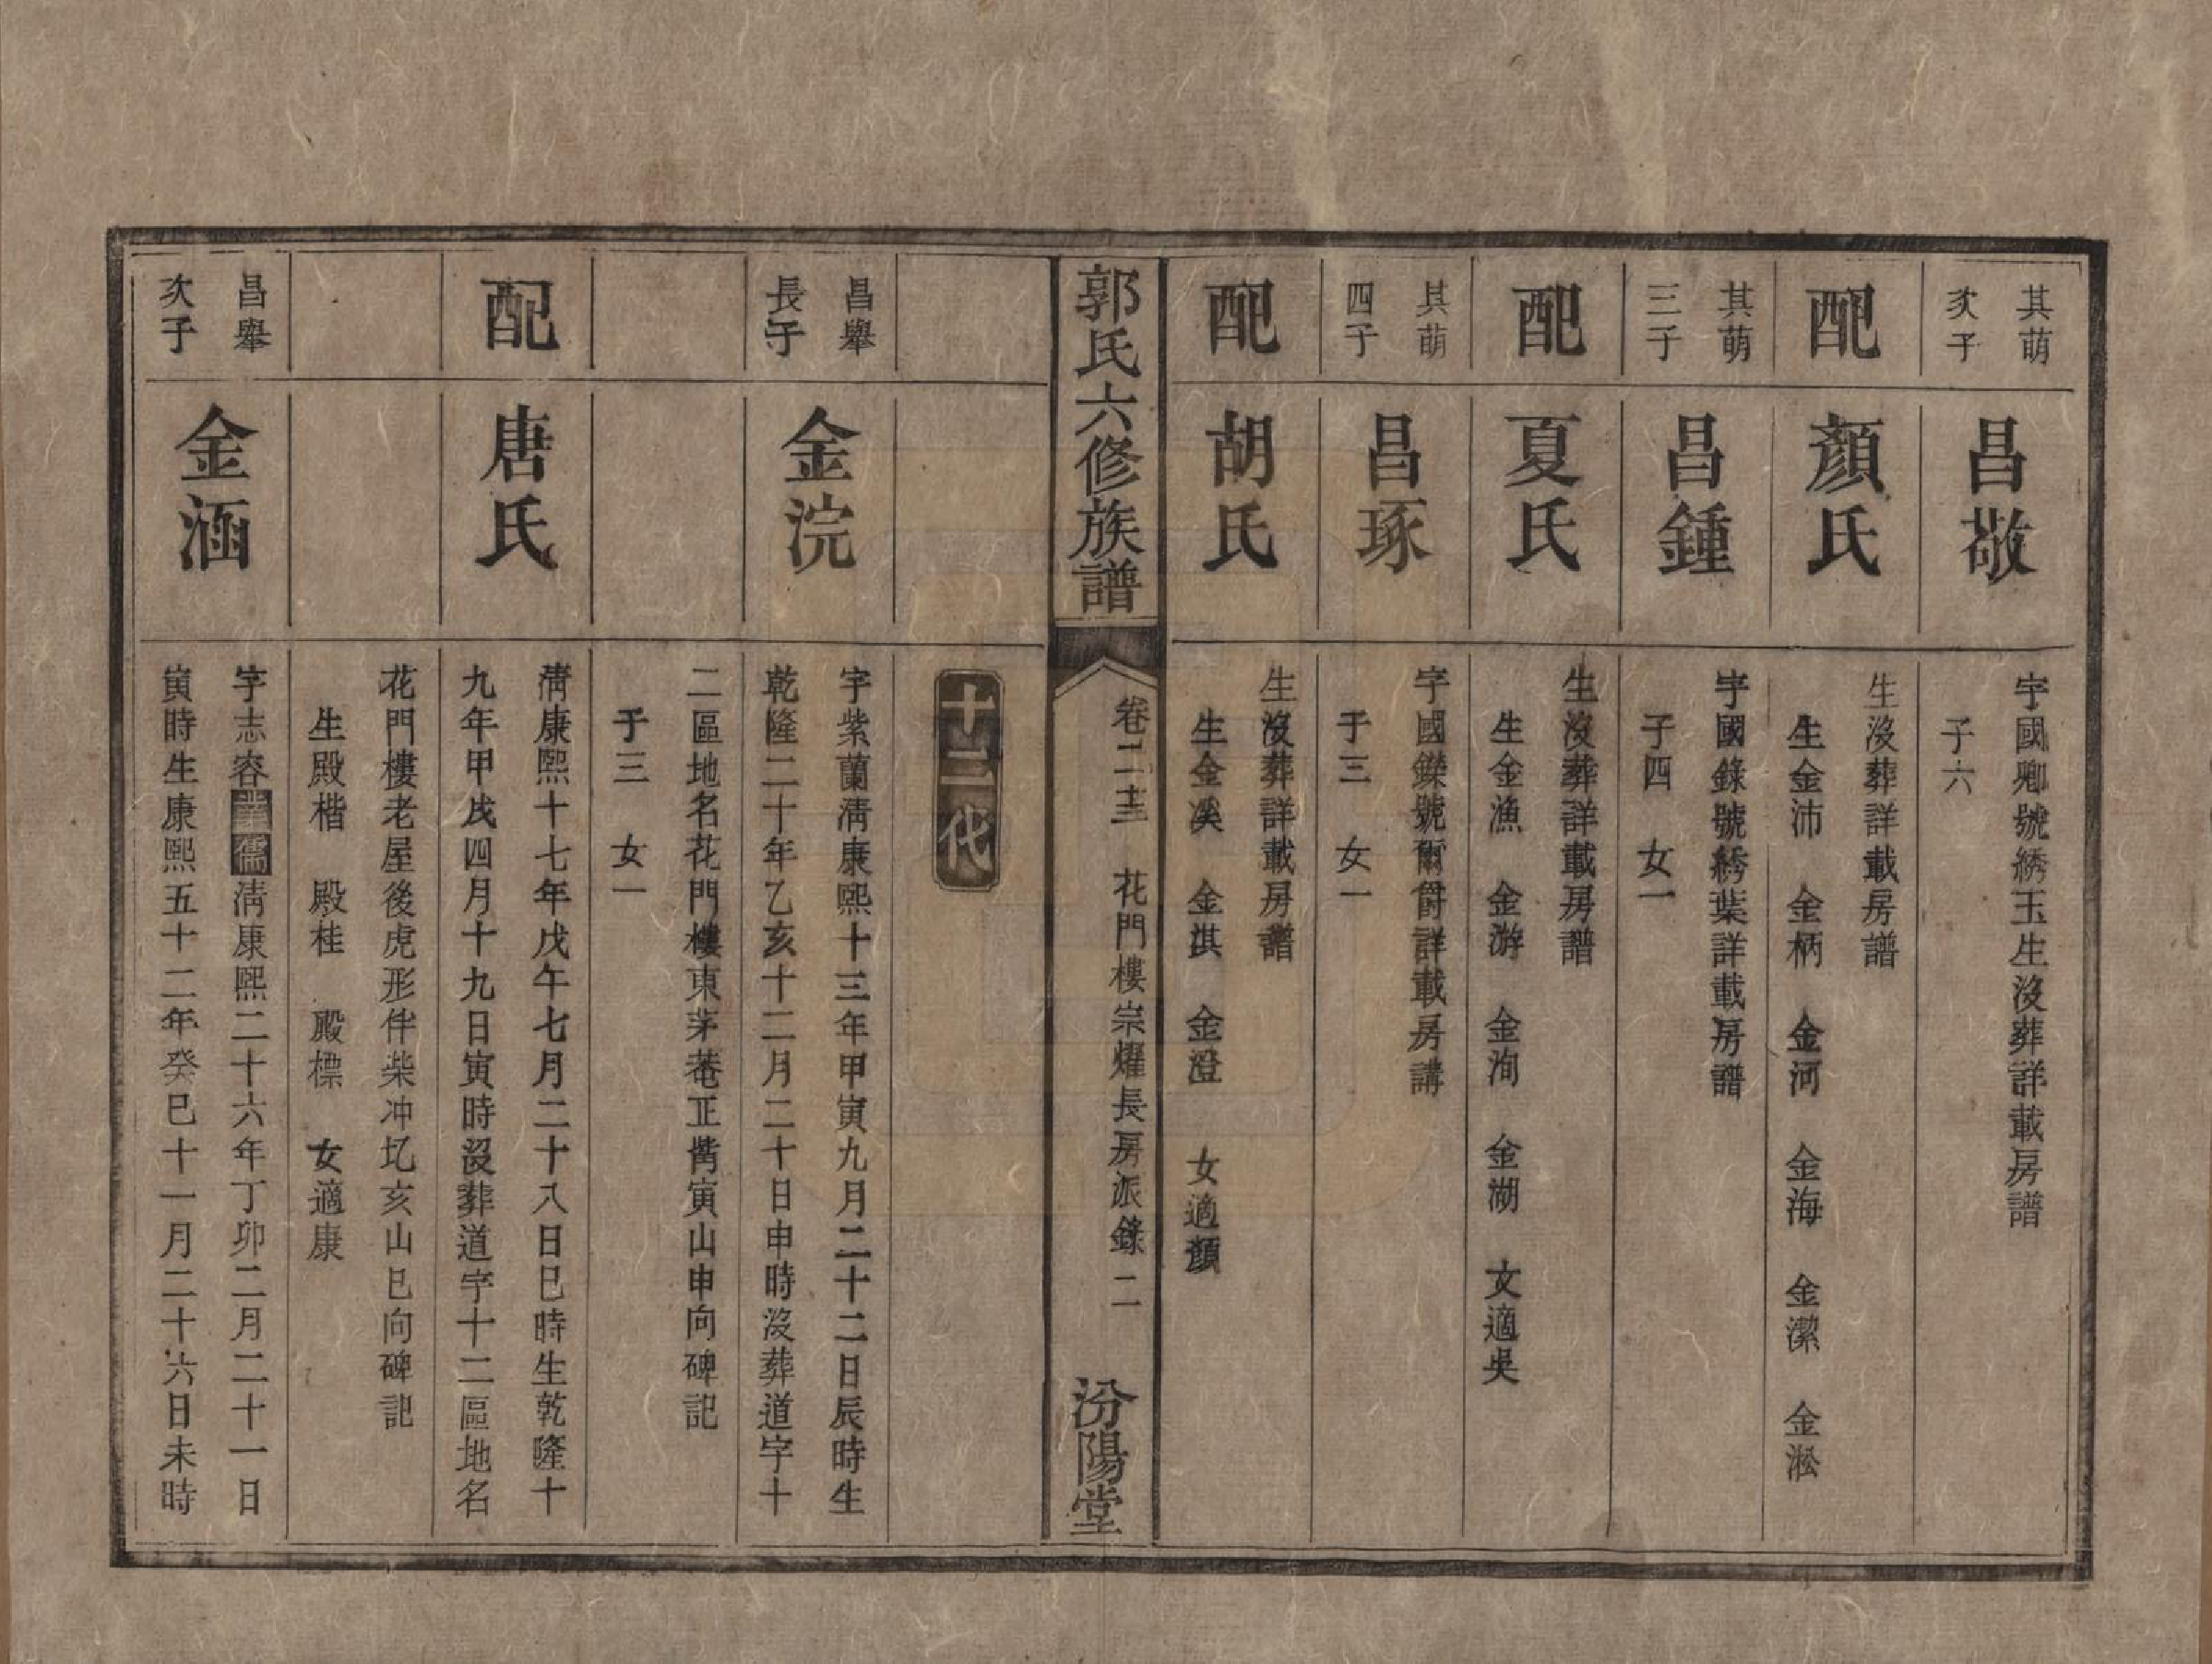 其萌
次子
昌敬
字國卿號綉玉生沒葬詳載房譜
子六
配
顏氏
生沒葬詳載房譜
生金沛　金柄　金河　金海　金潔　金淞
其萌
三子
昌鍾
字國錄號綉葉詳載房譜
子四　女一
配
夏氏
生沒葬詳載房譜
生金漁　金游　金洵　金湖　女適吳
其萌
四子
昌琢
字國鑅號爾爵詳載房譜
子三　女一
配
胡氏
生沒葬詳載房譜
生金溪　金淇　金澄　女適顏
郭氏六修族譜
卷二十三　花門樓宗燿長房派錄　二
汾陽堂
十三代
昌舉
長子
金浣
字紫蘭清康熙十三年甲寅九月二十二日辰時生
乾隆二十年乙亥十二月二十日申時沒葬道字十
二區地名花門樓東茅菴正嘴寅山申向碑記
子三　女一
配
唐氏
清康熙十七年戊午七月二十八日巳時生乾隆十
九年甲戌四月十九日寅時沒葬道字十二區地名
花門樓老屋後虎形伴柴冲圫亥山巳向碑記
生殿楷　殿桂　殿標　女適康
昌舉
次子
金涵
字志容業儒清康熙二十六年丁卯二月二十一日
寅時生康熙五十二年癸巳十一月二十六日未時